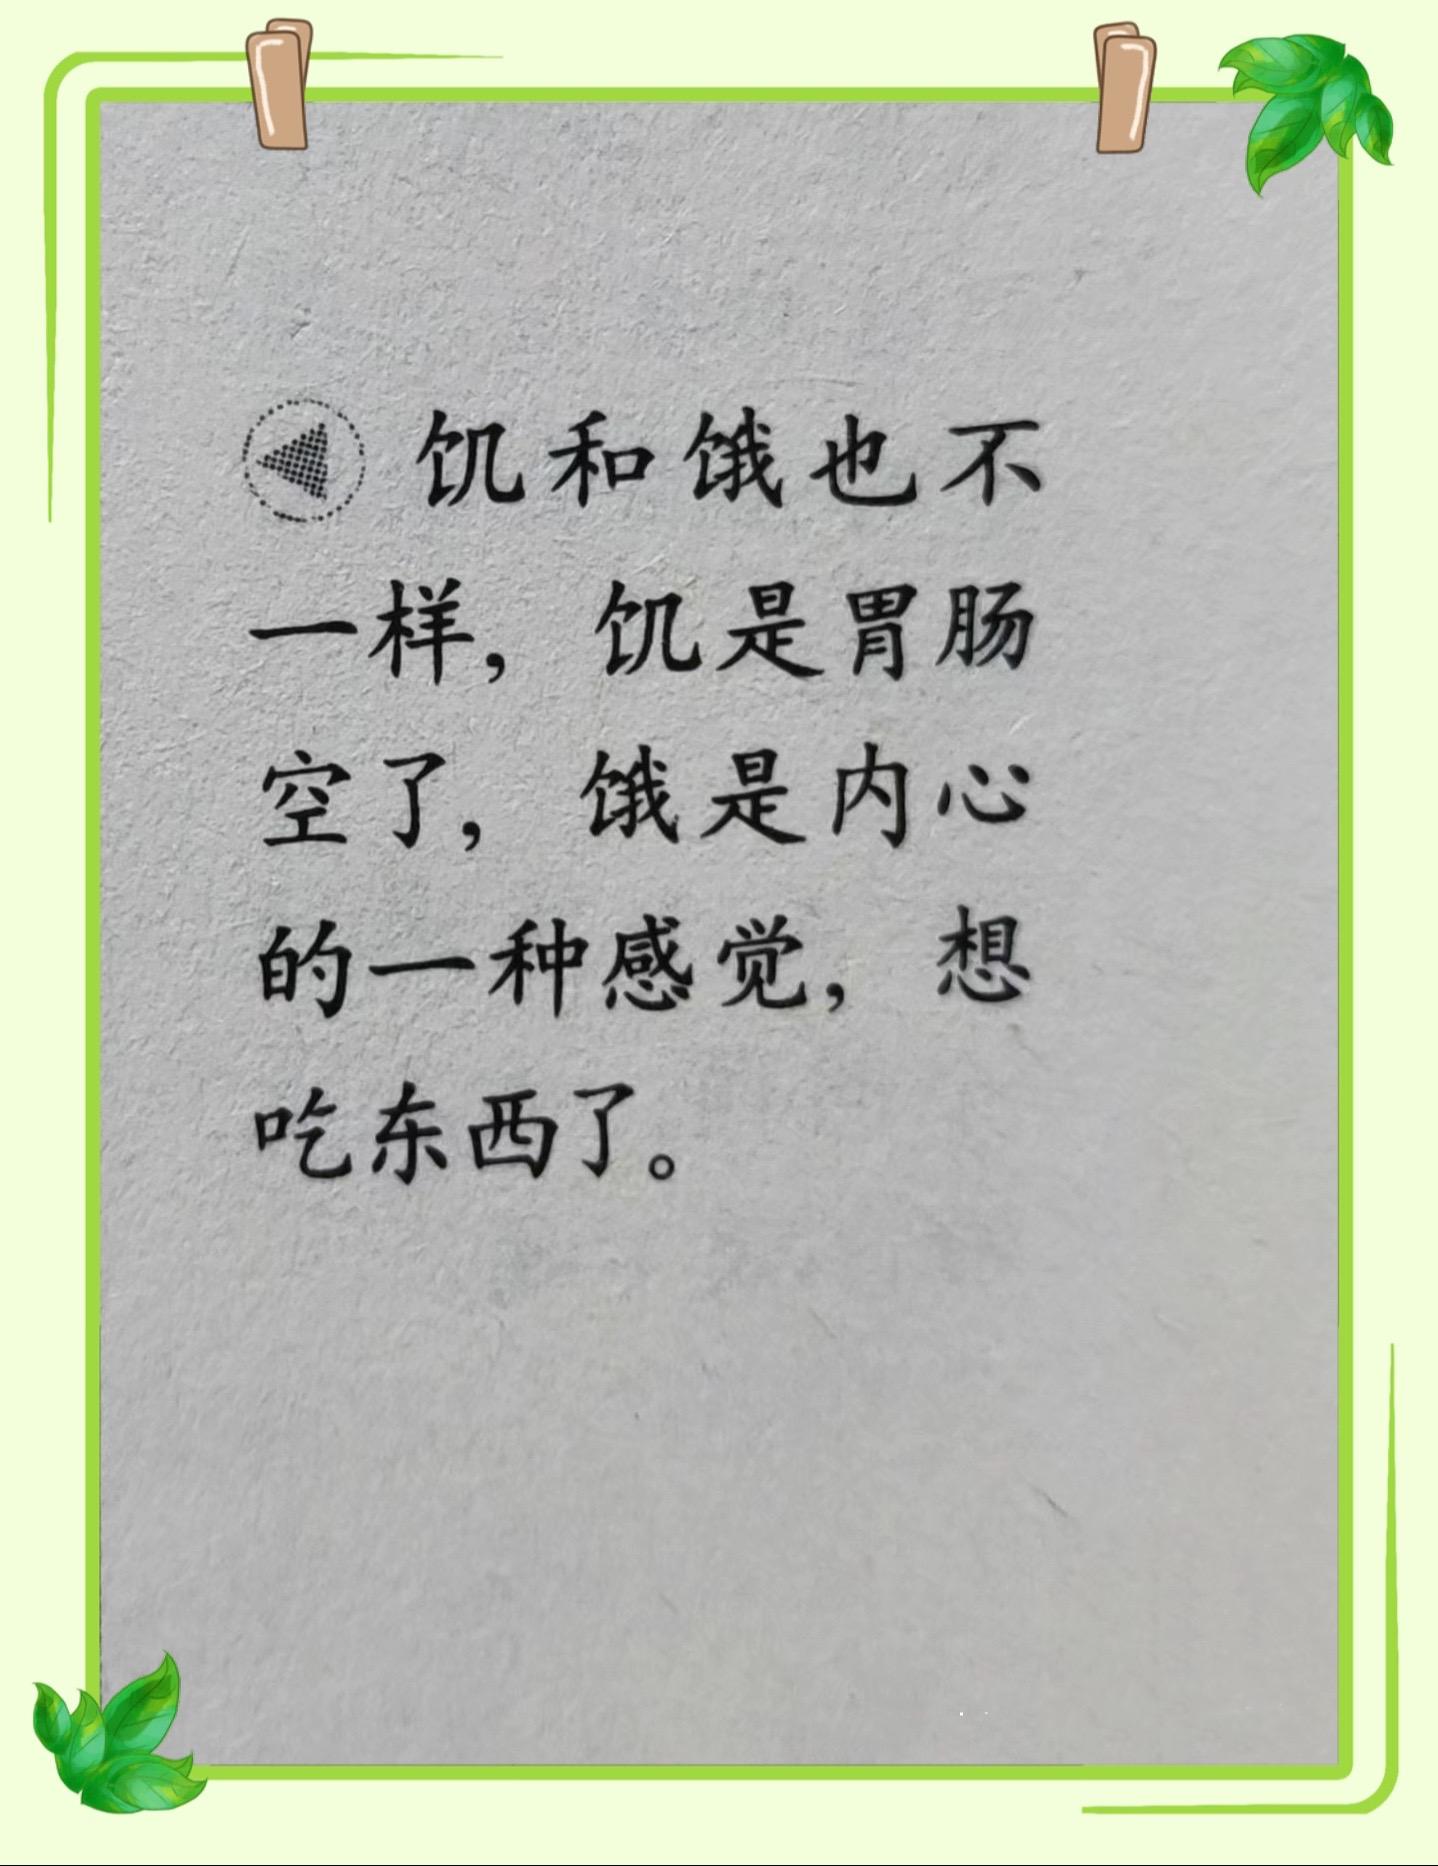 饥和饿也不
一样，饥是胃肠
空了，饿是内心
的一种感觉，想
吃东西了。